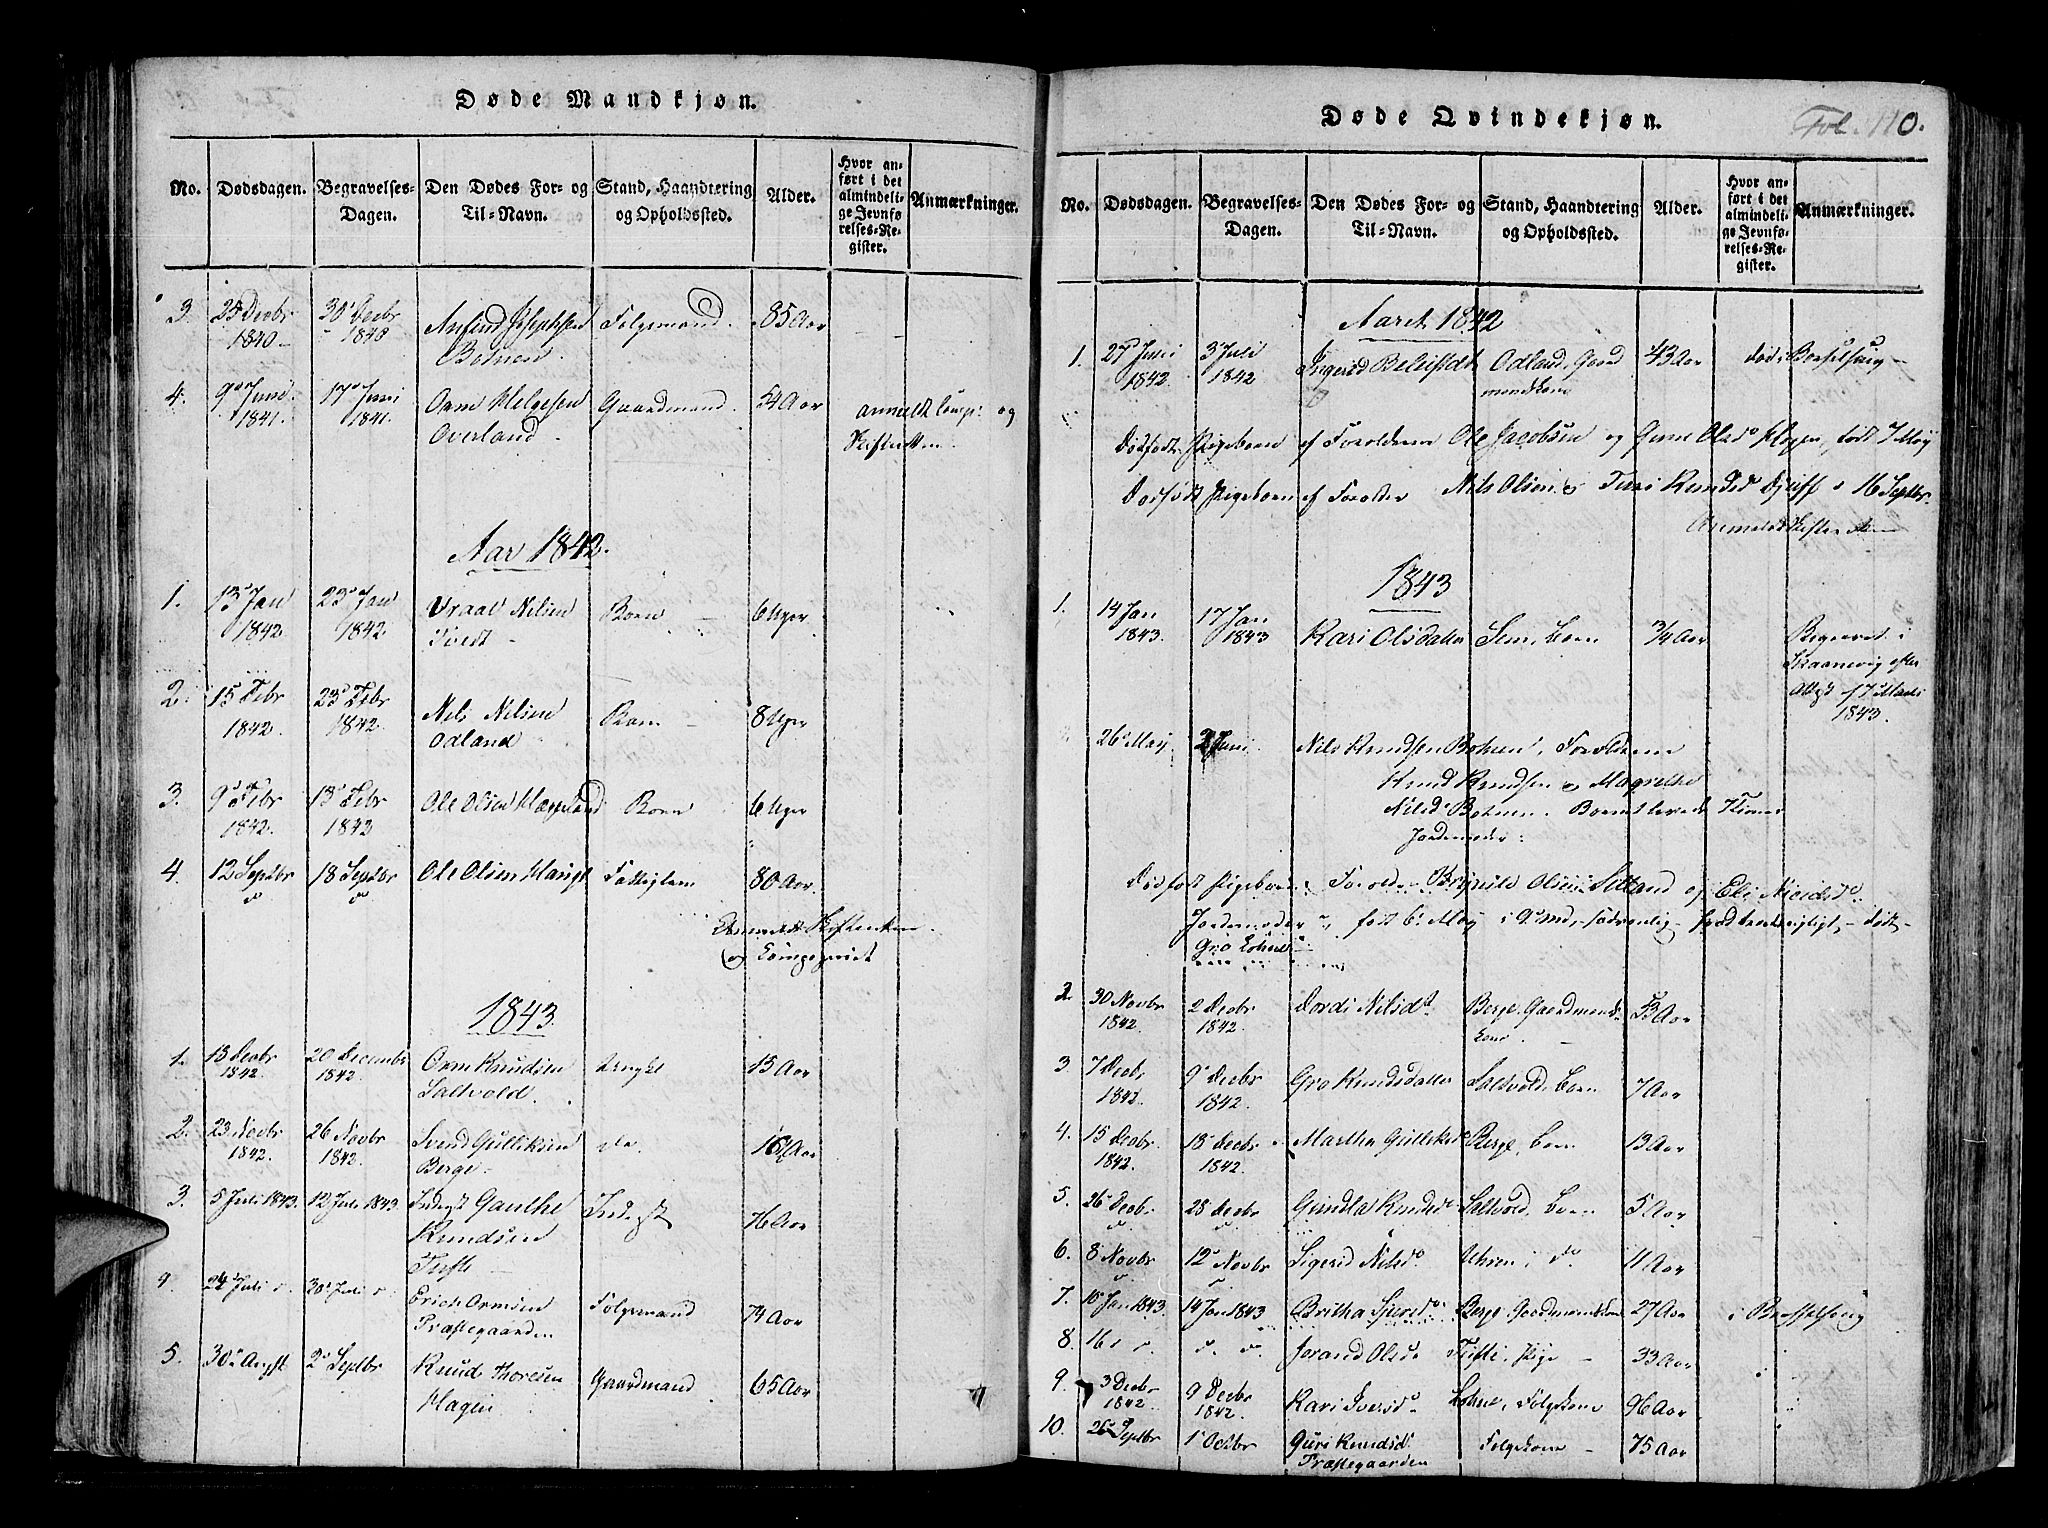 Døde Mandkjøn.
No. Dødsdagen. Begravelses-Dagen. Den Dødes For- og Til-Navn. Stand, Haandtering og Opholdssted. Alder. Hvor anført i det almindelige Jevnførelses-Register. Anmærkninger.
3. 25 Decbr 1840 30 Decbr 1840 Anfind Josephsen Folgemand. 85 Aar
4. 9 Juni 1841. 17 Juni 1841. Orm Helgesen Gaardmand. 54 Aar anmeldt og
Overland Skifteretten
Aar 1842.
1. 13 Jan 1842 23 Jan 1842. Vraal Nilsen Barn 6 Uger
Tvedt
2. 15 Febr 1842. 23 Febr 1842. Nils Nilsen Barn 8 Uger
Odland
3. 9 Febr 1842. 13 Febr 1842 Ole Olsen Barn 6 Uger
4. 12 Septbr 18 Septbr Ole Olsen Haugt Fattiglem 80 Aar.
Anmeldt Skifteretten
og
1843.
1. 13 Decbr 1842. 20 Decembr 1842. Orm Knudsen 13 Aar
Saltvold.
2. 23 Novbr 1842. 26 Novbr 1842. Svend Gulliksen do. 16 Aar
Berge
3. 5 Juli 1843. 12 Juli 1843. Inderst Gauthe Inderst 76 Aar
Knudsen
Tufte
4. 24 Juli 30 Juli Erich Ormsen Folgemand 74 Aar
Præstegaarden
5. 30 Augst 2 Septbr Knud Thoresen Gaardmand 65 Aar
Hagen
Døde Qvindekjøn.
Fol. 110.
No. Dødsdagen. Begravelses-Dagen. Den Dødes For- og Til-Navn. Stand, Haandtering og Opholdssted. Alder. Hvor anført i det almindelige Jevnførelses-Register. Anmærkninger.
Aaret 1842
1. 27 Juni 1842. 3 Juli 1842 Ingerid Odland, Gaardmandskone 43 Aar død i Barselseng
Dødfødt Pigebarn af Forældrene Ole Jacobsen og Olsd født 7 May
Dødfødt Pigebarn af Forældre Nils Olsen & Turi Knudsd 16 Septbr.
Anmeldt Skifteretten
1843
1. 14 Jan 1843. 17 Jan 1843 Kari Olsdatter Sem, barn 3/4 Aar Begravet i
Skaanevig efter
17 Marts
1843.
26 May 2 Juni Nils Knudsen Forældrene
Knud Knudsen & Magrethe
Nilsd
Jordemoder:
Dødfødt Pigebarn, Forældre Brynild Olsen og Eli
Jordemoder født 6 May i
Gro
2. 30 Novbr 1842. 2 Decbr 1842. Dordi Nilsdt Berge, Gaardmandskone 53 Aar
3. 7 Decbr 1842. 9 Decbr 1842. Gro Knudsdatter Saltvold, barn 7 Aar
4. 15 Decbr. 1842. 18 Decbr 1842. Martha Gulliksd Berge, barn 13 Aar
5. 26 Decbr 28 Decbr Gundla Knudsd Saltvold, barn 5 Aar
6. 8 Novbr 12 Novbr Sigrid Nilsd Uhren, do 11 Aar
7. 10 Jan 1843 14 Jan 1843 Britha Berge, Gaardmandskone 27 Aar i Barselseng
8. 16 Jorand Olsd Tufte, Pige 33 Aar
9. 3 Decbr 1842 9 Decbr 1842. Kari Iversd Lohne, Folgekone 96 Aar
10. 26 Septbr 1 Octbr Guri Knudsd Folgekone 75 Aar
Præstegaarden